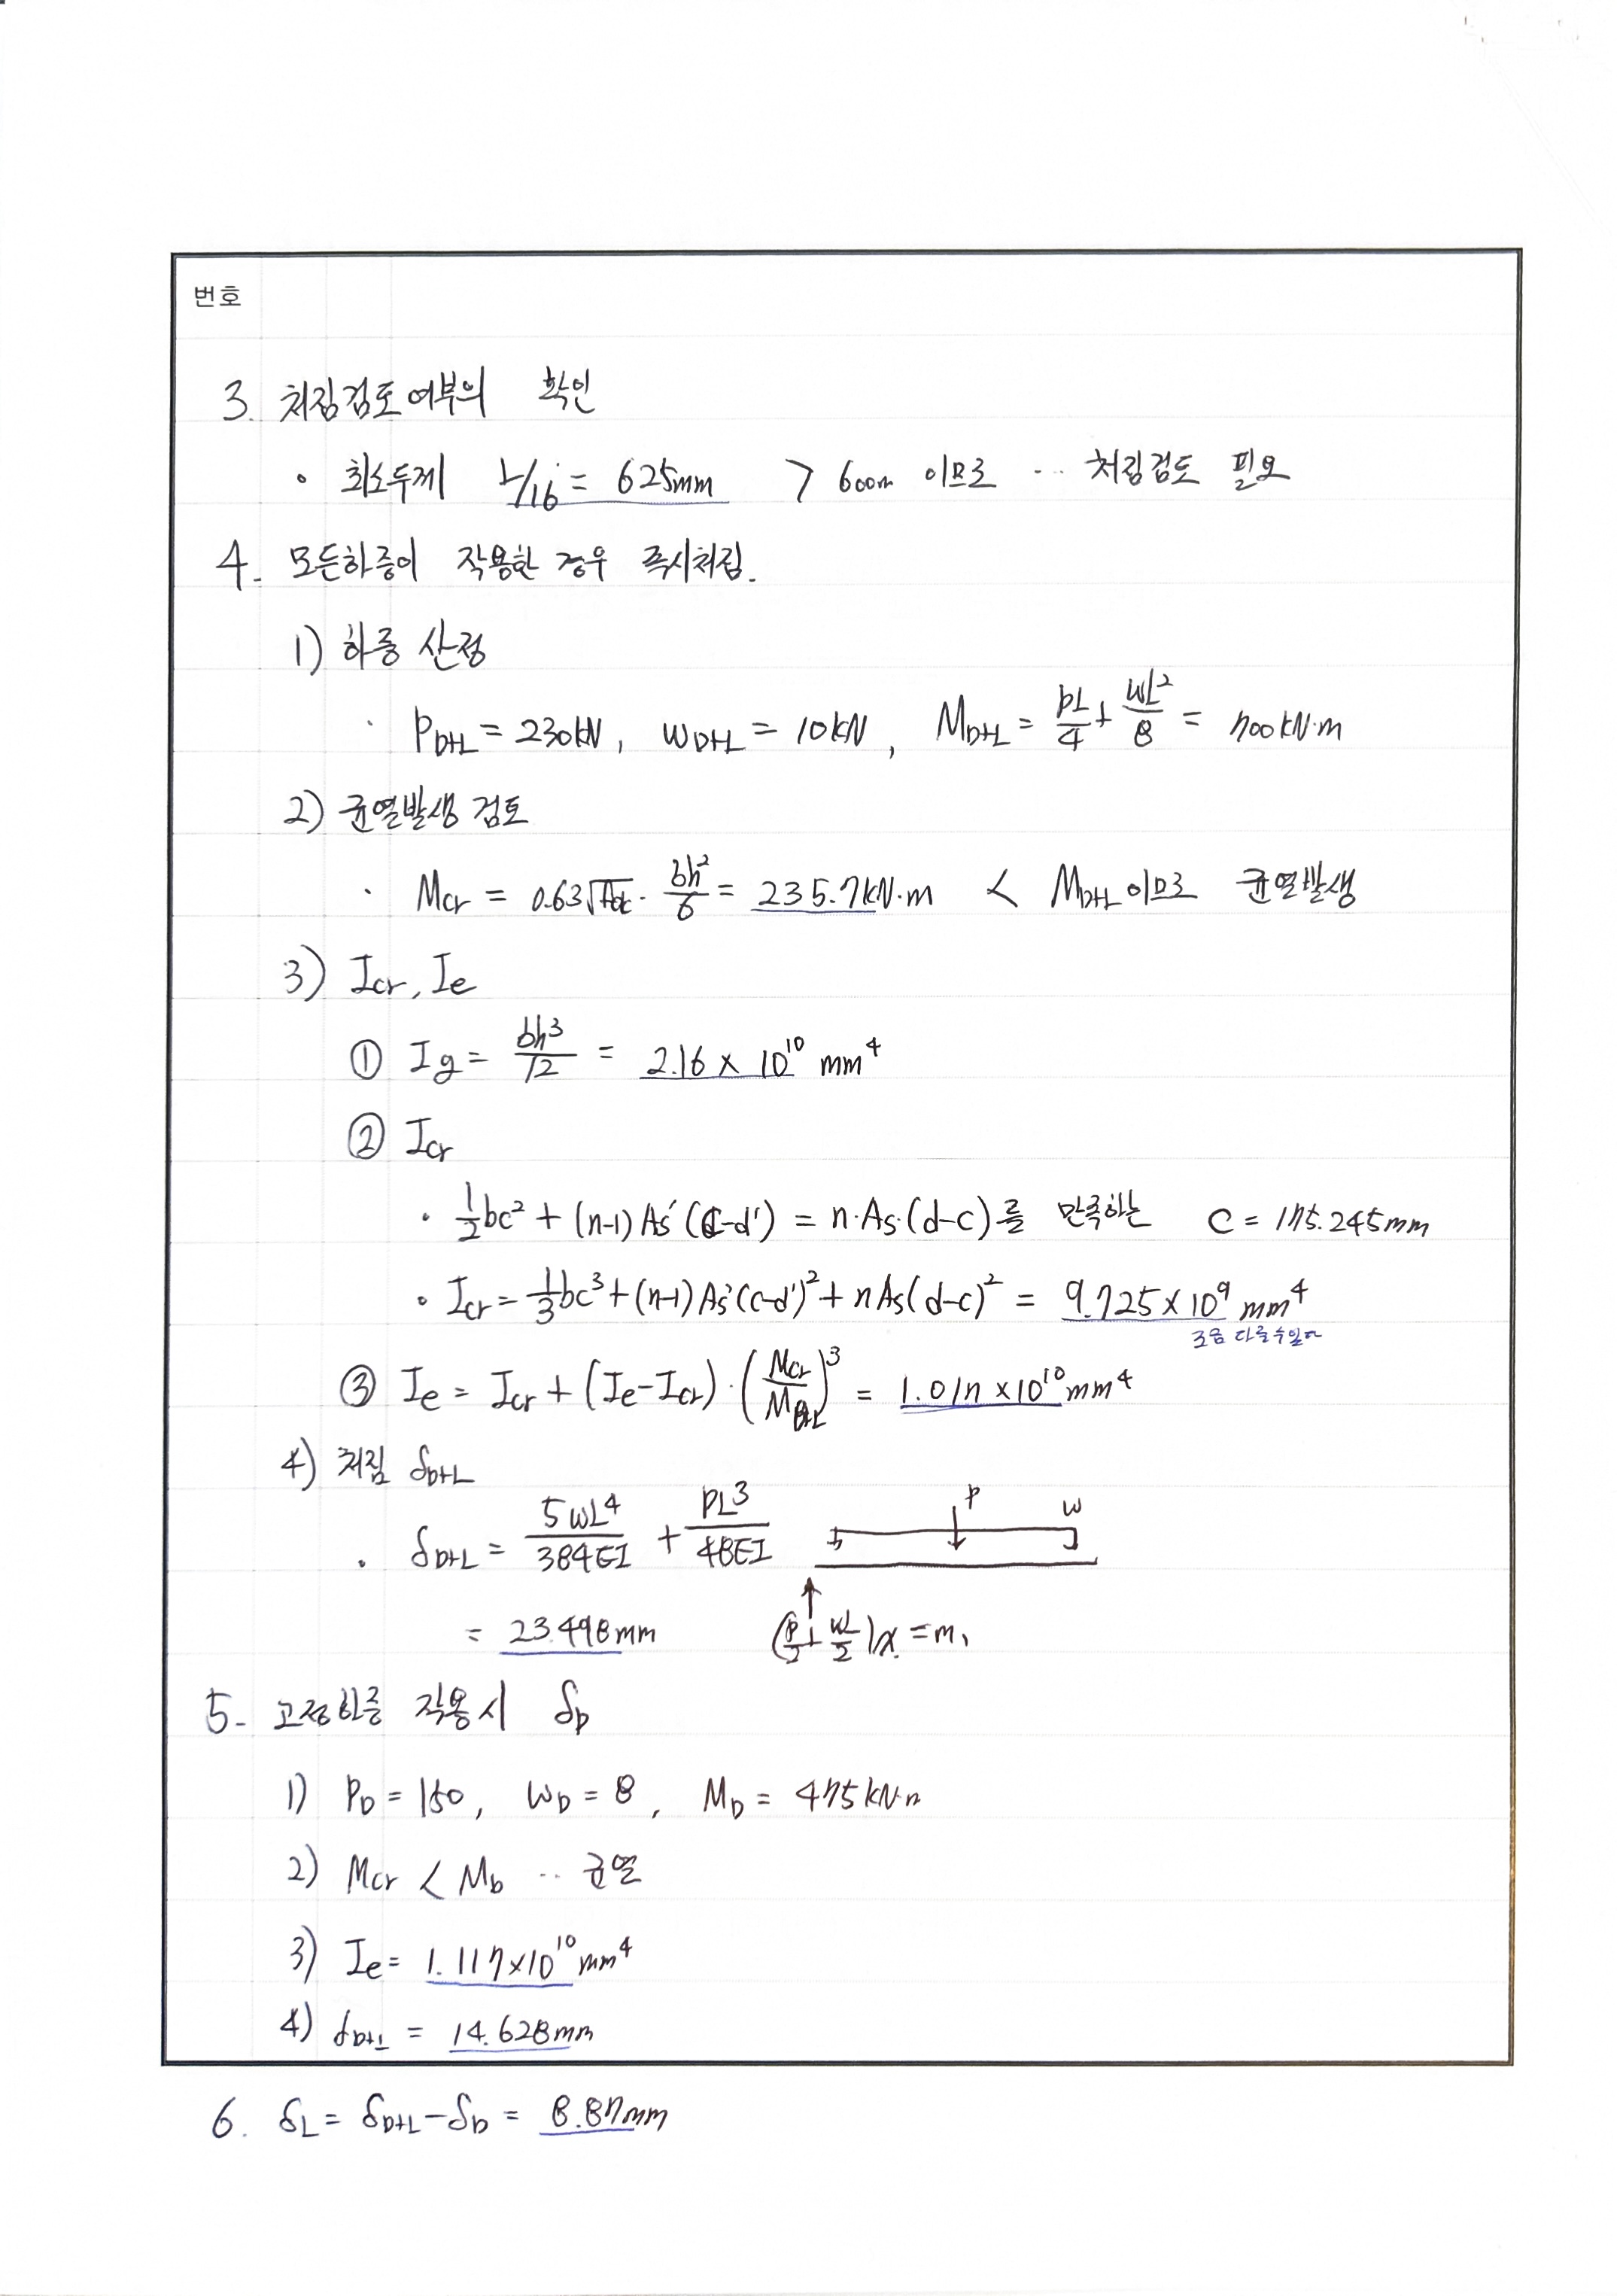 번호
3. 처짐검토여부의 확인
• 최소두께 L/16 = 625mm > 600m 이므로 … 처짐검토 필요
4. 모든하중이 작용한 경우 즉시처짐.
1) 하중 산정
· P_D+L = 230kN, w_D+L = 10kN, M_D+L = PL/4 + wL²/8 = 700kN·m
2) 균열발생 검토
· Mcr = 0.63√fck · bh²/6 = 235.7kN·m < M_D+L 이므로 균열발생
3) Icr, Ie
① Ig = bh³/12 = 2.16 × 10¹⁰ mm⁴
② Icr
· ½bc² + (n-1)As'(c-d') = n·As·(d-c)를 만족하는 C = 175.245mm
• Icr = ⅓bc³ + (n-1)As'(c-d')² + nAs(d-c)² = 9.725×10⁹ mm⁴
조금 다를수있다
③ Ie = Icr + (Ie-Icr)·(Mcr/M_D+L)³ = 1.017 × 10¹⁰ mm⁴
4) 처짐 δ_D+L
· δ_D+L = 5wL⁴/384EI + PL³/48EI
P w
= 23.498mm (P/2 + wL/2)x = m,
5. 고정하중 작용시 δ_D
1) P_D = 150, w_D = 8, M_D = 475kN·m
2) Mcr < M_D ‥ 균열
3) Ie = 1.117×10¹⁰ mm⁴
4) δ_D+L = 14.628mm
6. δ_L = δ_D+L - δ_D = 8.87mm